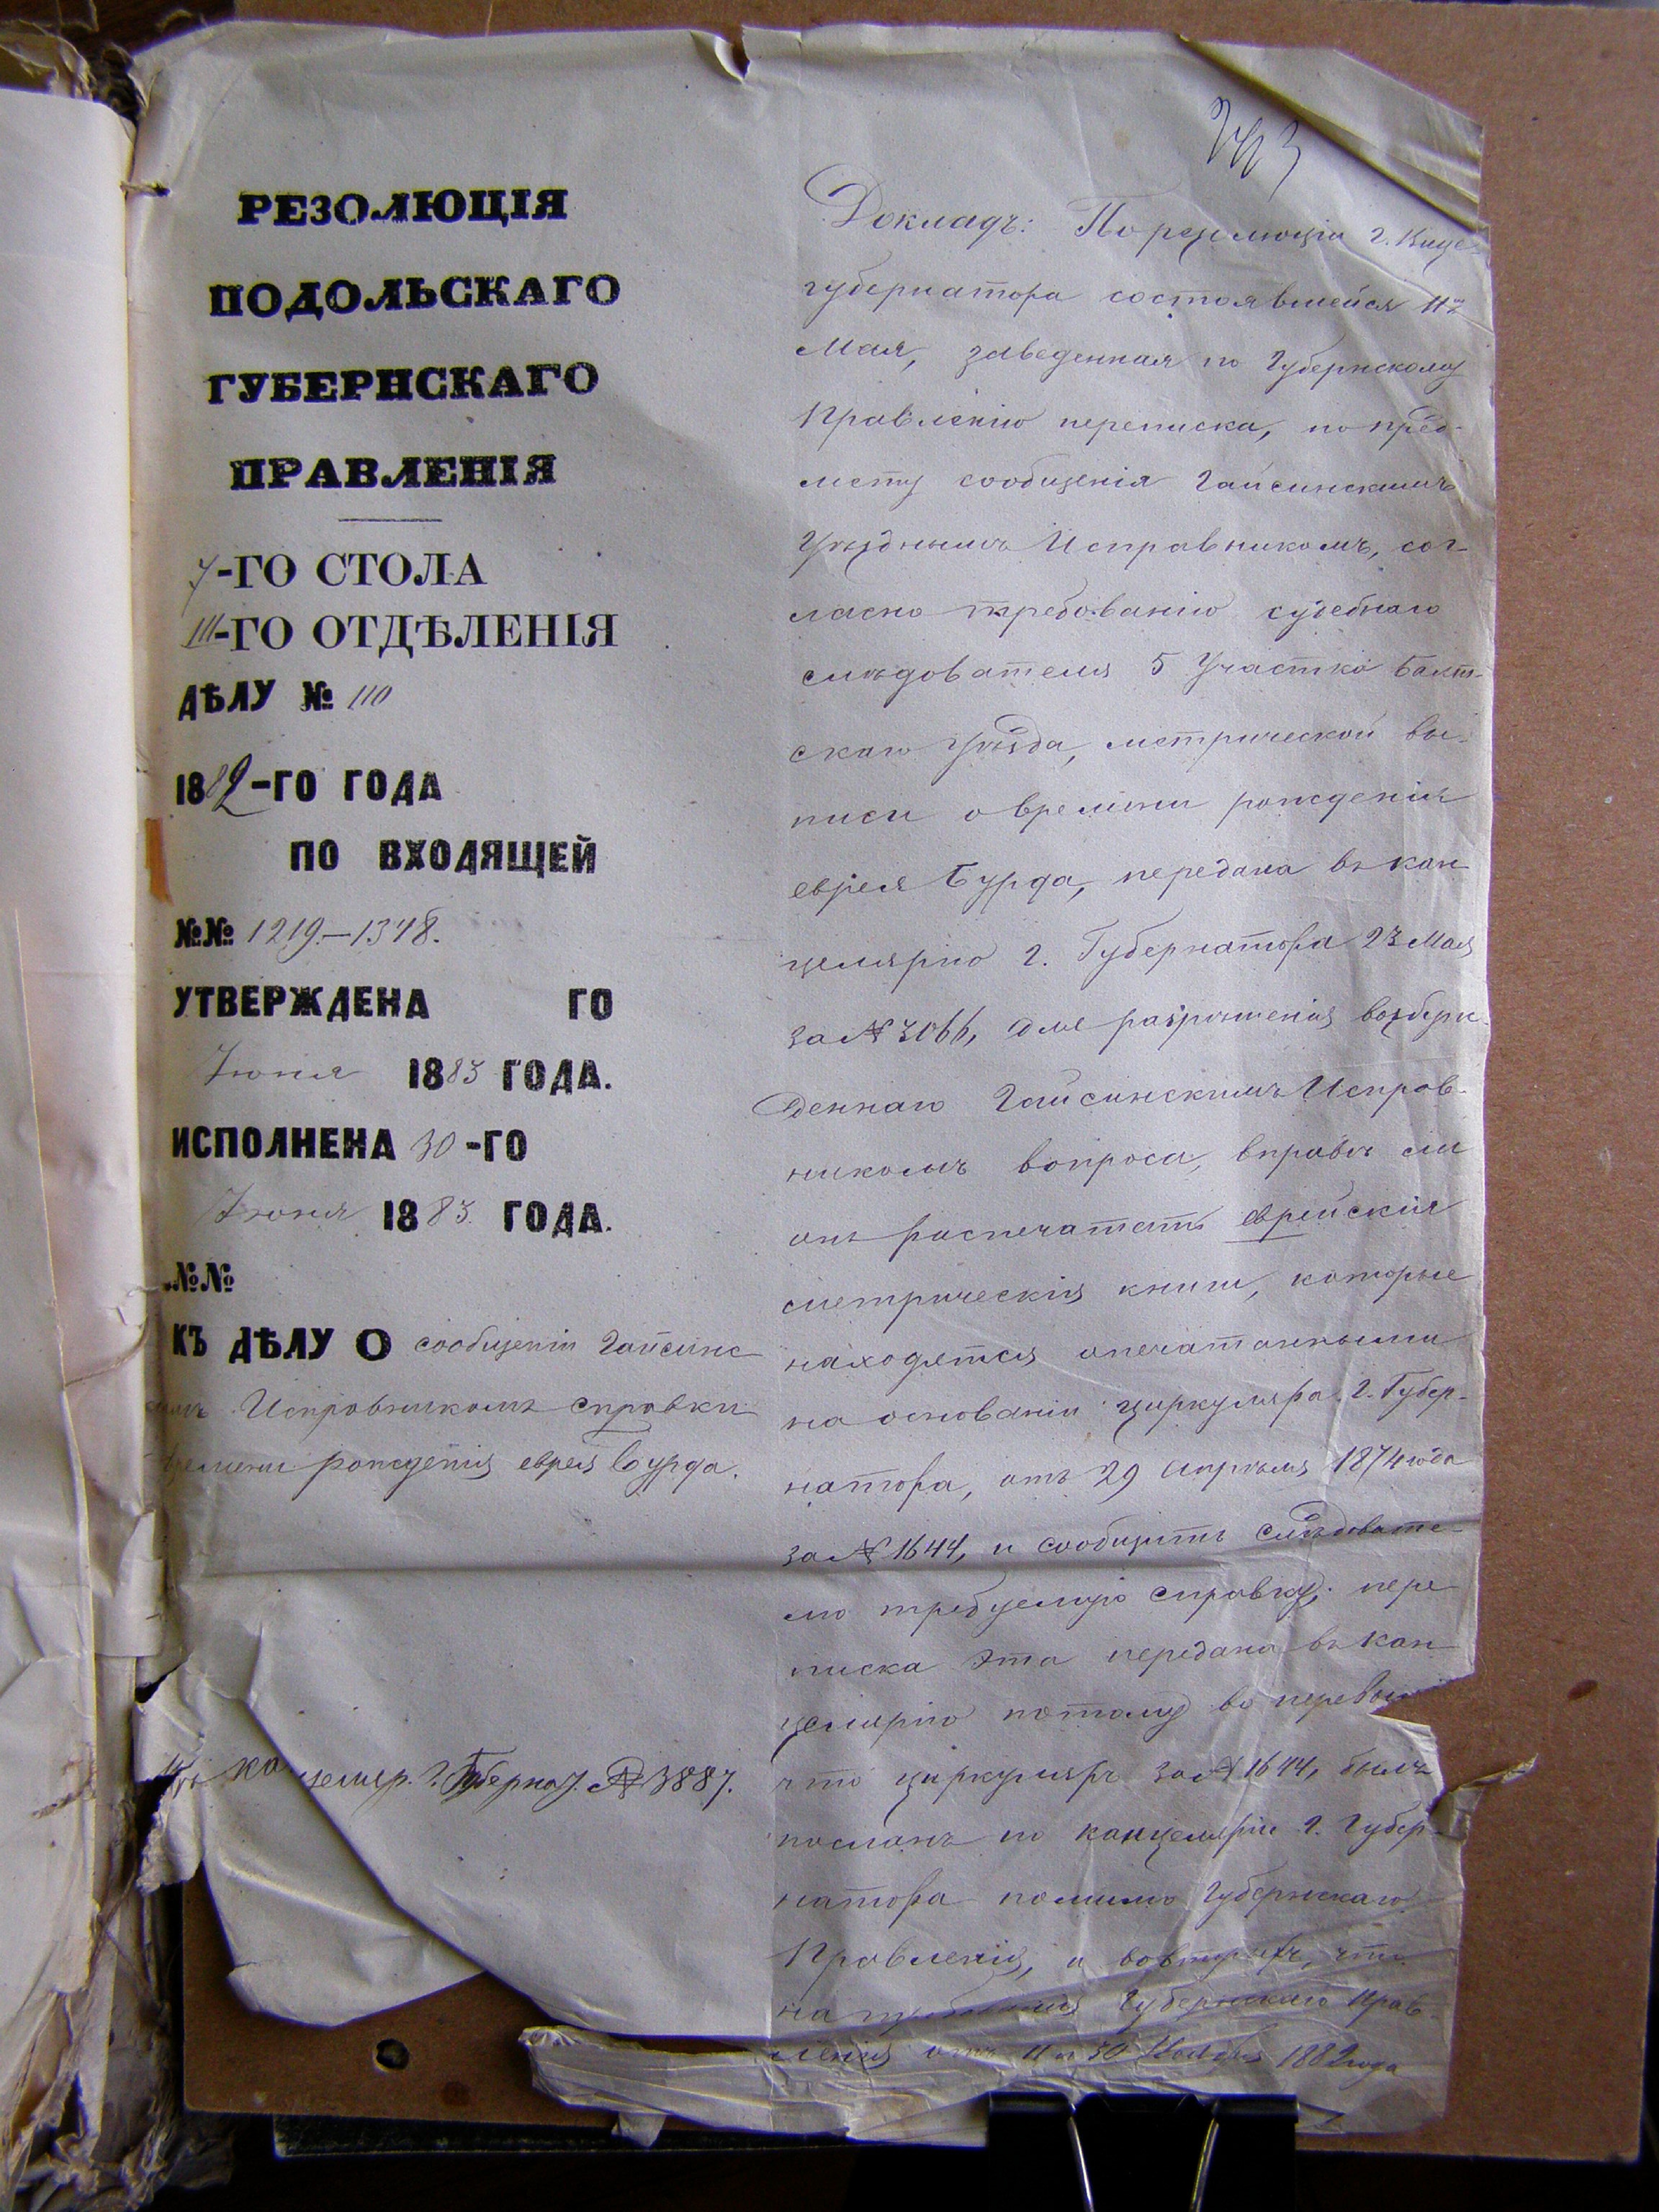 РЕЗОЛЮЦІЯ
ПОДОЛЬСКАГО
ГУБЕРНСКАГО
ПРАВЛЕНІЯ
7-ГО СТОЛА
III-ГО ОТДѢЛЕНІЯ
ДѢЛУ № 110
1882-ГО ГОДА
ПО ВХОДЯЩЕЙ
№№ 1219.-1348.
УТВЕРЖДЕНА ГО
Іюня 1883 ГОДА.
ИСПОЛНЕНА 30-ГО
Іюня 1883 ГОДА.
№№
КЪ ДѢЛУ О сообщеніи Гайсинс
Исправникомъ справки
времени рожденія еврея Бурда.
канцеляр. Г. Губернат. № 3887.
243
Докладъ: По резолюціи Г. Вице-
губернатора состоявшейся 11го
Мая, заведенная по Губернскому
Правленію переписка, по пред-
мету сообщенія Гайсинскимъ
Уѣзднымъ Исправникомъ, сог-
ласно требованію судебнаго
слѣдователя 5 участка Балт-
скаго уѣзда, метрической вы-
писи о времени рожденія
еврея Бурда, передана въ кан
целярію Г. Губернатора 23 Мая
за № 3066, для разрѣшенія возбуж-
деннаго Гайсинскимъ Исправ-
никомъ вопроса, вправѣ ли
онъ распечатать еврейскія
метрическія книги, которые
находятся опечатанными
на основаніи циркуляра Г. Губер-
натора, отъ 29 Апрѣля 1874 года
за № 1644, и сообщить слѣдовате-
лю требуемую справку; пере
писка эта передана въ кан
целярію потому во первых
что циркуляръ за № 1644, былъ
посланъ по канцеляріи Г. Губер-
натора помимо Губернскаго
Правленія, и вовторыхъ, что
на требованія Губернскаго Прав-
ленія отъ 11 и 30 Ноября 1882 года